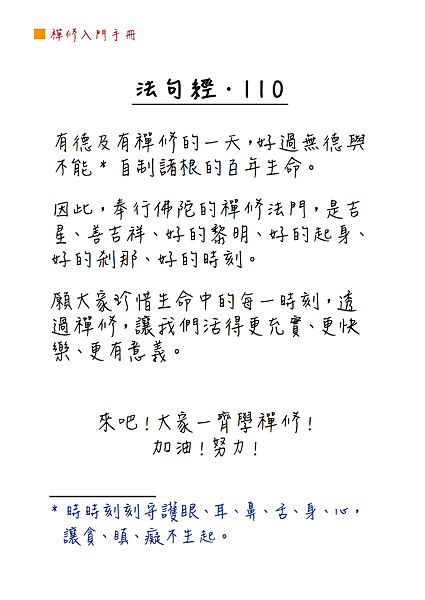 禪修入門手冊
法句經·110
有德及有禪修的一天,好過無德與
不能*自制諸根的百年生命。
因此,奉行佛陀的禪修法門,是吉
星、善吉祥、好的黎明、好的起身、
好的剎那、好的時刻。
願大家珍惜生命中的每一時刻,透
過禪修,讓我們活得更充實、更快
樂、更有意義。
來吧!大家一齊學禪修!
加油!努力!
*時時刻刻守護眼、耳、鼻、舌、身、心,
讓貪、瞋、癡不生起。